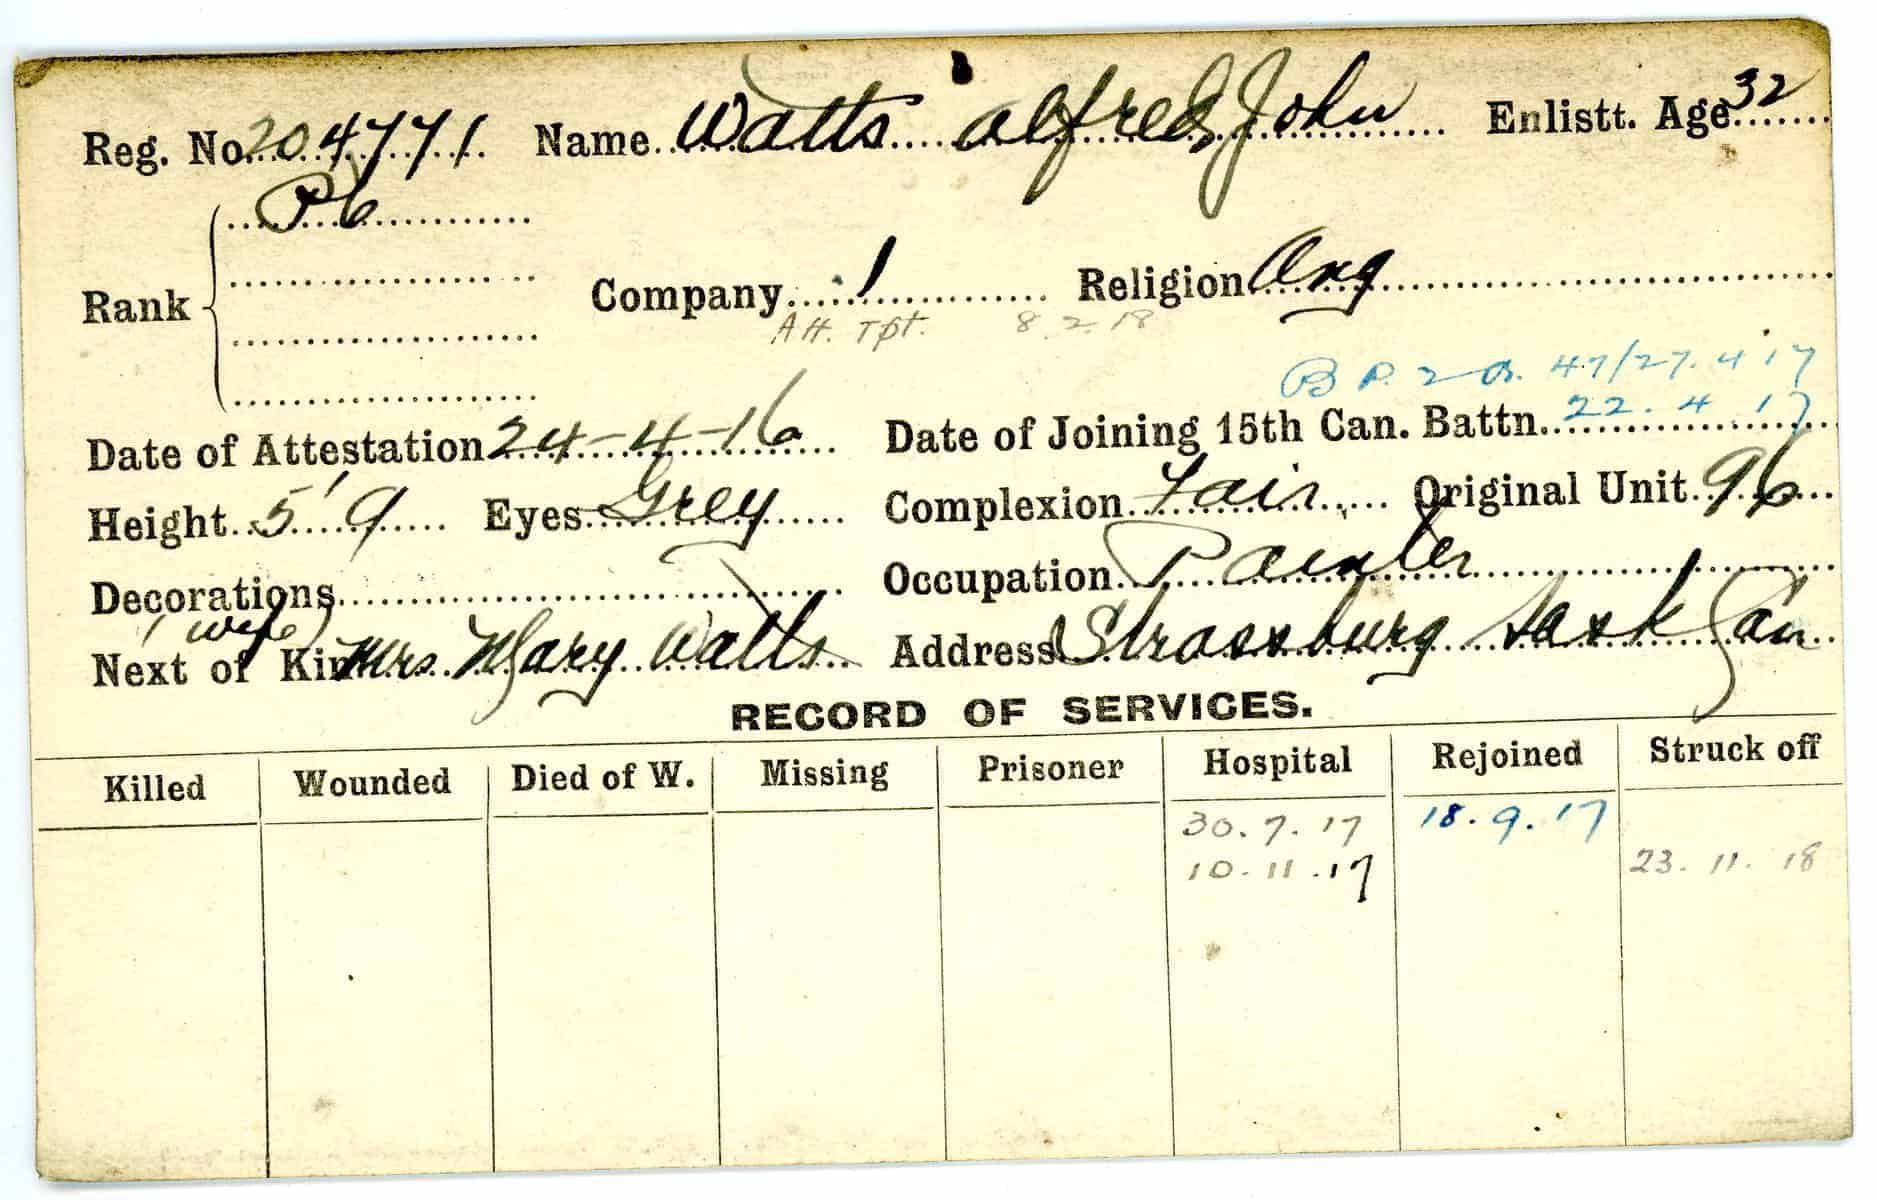 Reg. No. 204771 Name Watts Alfred John Enlistt. Age 32
Pte
Rank Company 1 Religion Ang
Att. Tpt. 8.2.18
B P. 2 O. 47/27.4.17
Date of Attestation 24-4-16 Date of Joining 15th Can. Battn. 22.4.17
Height 5'9 Eyes Grey Complexion Fair Original Unit 96
Decorations Occupation Painter
(wife)
Next of Kin Mrs. Mary Watts Address Strassburg Sask Can
RECORD OF SERVICES.
Killed Wounded Died of W. Missing Prisoner Hospital Rejoined Struck off
30.7.17 18.9.17
10.11.17 23.11.18